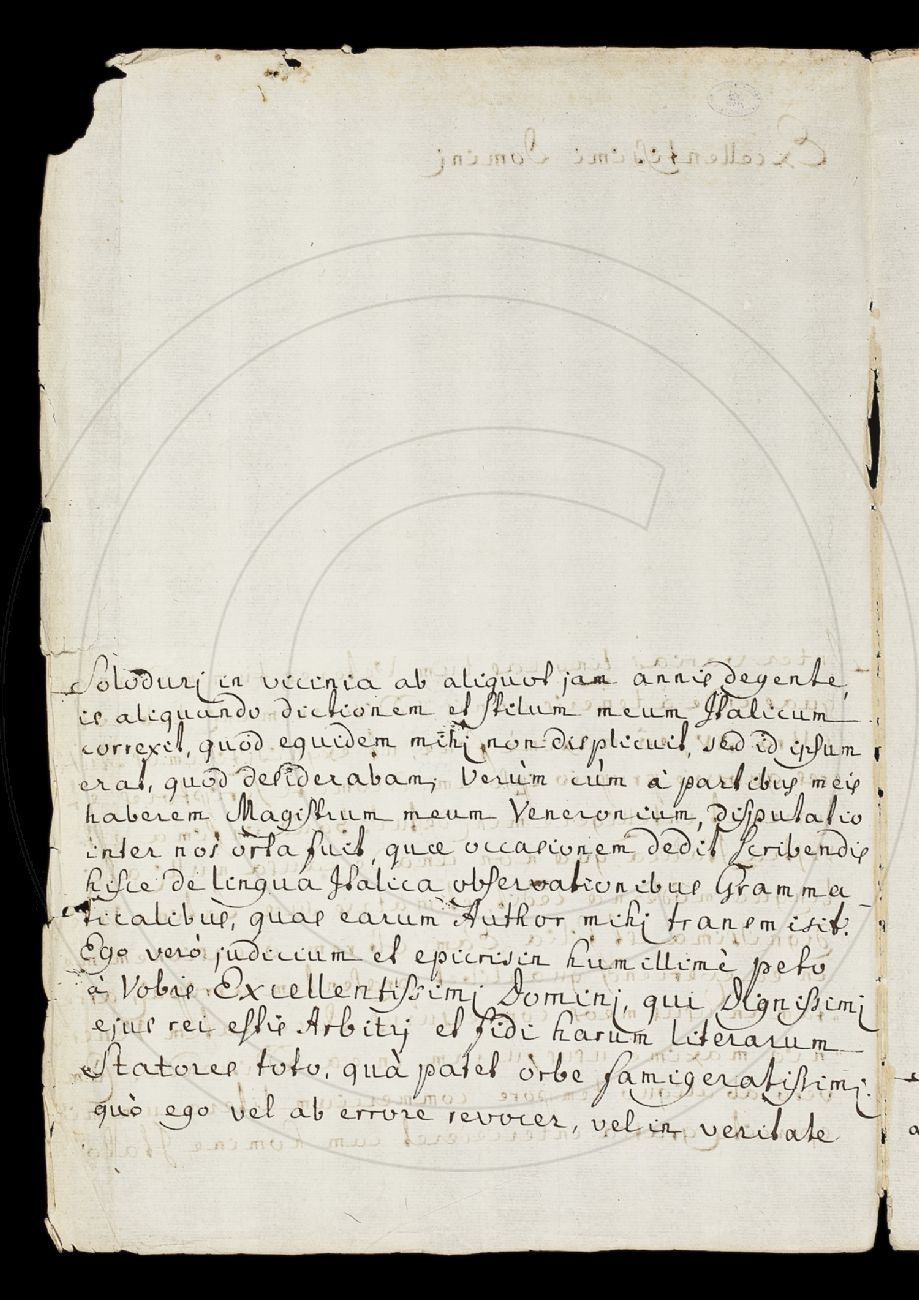 Solodurj in vicinia ab aliquot jam annis degente,
is aliquando dictionem et stilum meum Italicum
correxit, quod equidem mihj non displicuit, sed id ipsum
erat, quod desiderabam; Verùm cùm à partibus meis
haberem Magistrum meum Veneronium, disputatio
inter nos òrta fuit, quæ occasionem dedit scribendis
hisce de lingua Italica observationibus Gramma
ticalibus, quas earum Author mihj transmisit.
Ego verò judicium et epicrisin humillimè peto
à Vobis Excellentissimj Dominj, qui Dignissimj
ejus rei estis Arbitrj et fidi harum literarum
Statores toto, quà patet òrbe famigeratissimj.
quò ego vel ab errore revocer, vel in veritate